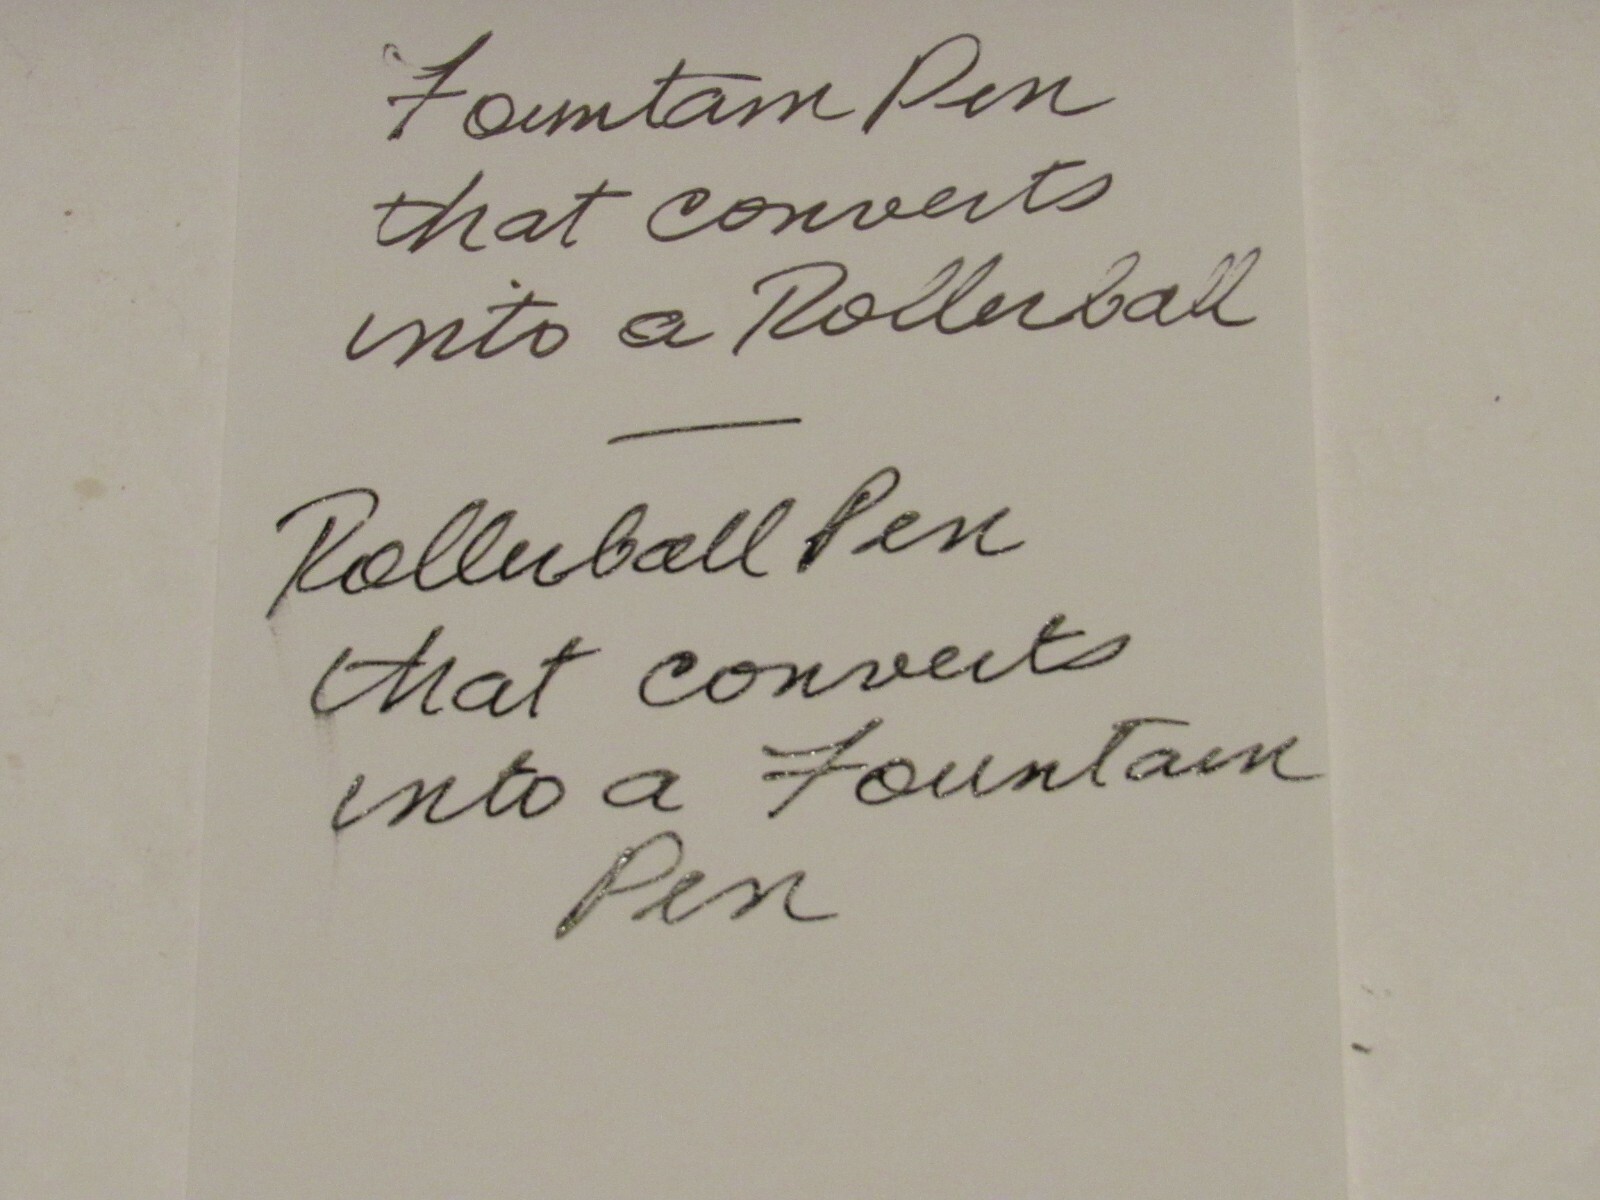 Fountain Pen
that converts
into a Rollerball
Rollerball Pen
that converts
into a Fountain
Pen